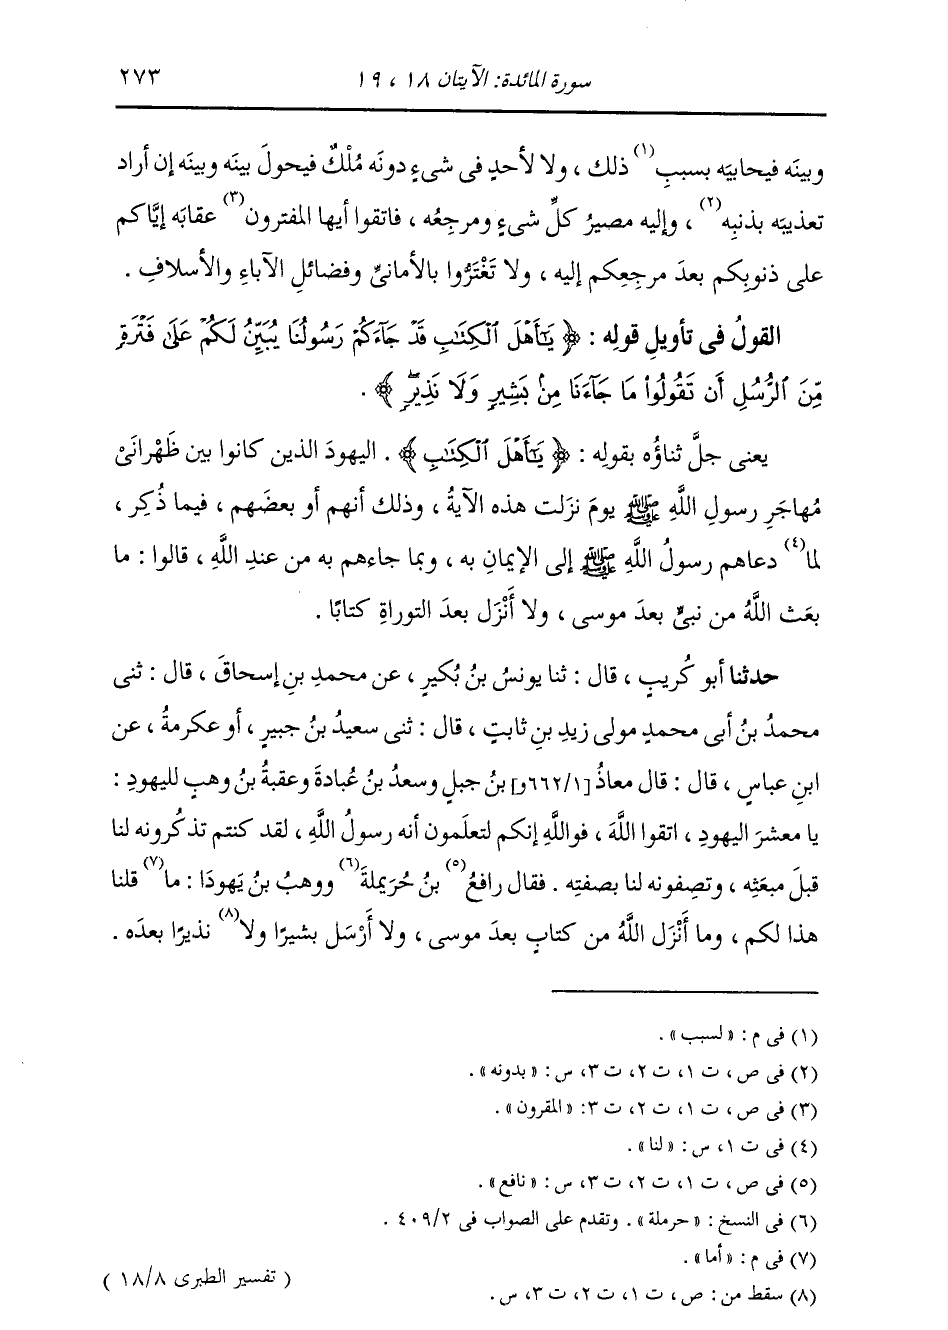 سورة المائدة: الآيتان ١٨ ، ١٩ ٢٧٣
وبينَه فيحابيَه بسببِ(١) ذلك ، ولا لأحدٍ فى شىءٍ دونَه مُلْكٌ فيحولَ بينَه وبينَه إن أراد
تعذيبَه بذنبِه(٢) ، وإليه مصيرُ كلِّ شىءٍ ومرجعُه ، فاتقوا أيها المفترون(٣) عقابَه إيَّاكم
على ذنوبِكم بعدَ مرجعِكم إليه ، ولا تَغْتَرُّوا بالأمانىِّ وفضائلِ الآباءِ والأسلافِ .
القولُ فى تأويلِ قولِه : ﴿ يَـٰٓأَهْلَ ٱلْكِتَـٰبِ قَدْ جَآءَكُمْ رَسُولُنَا يُبَيِّنُ لَكُمْ عَلَىٰ فَتْرَةٍ
مِّنَ ٱلرُّسُلِ أَن تَقُولُوا۟ مَا جَآءَنَا مِنۢ بَشِيرٍ وَلَا نَذِيرٍ ﴾ .
يعنى جلَّ ثناؤُه بقولِه : ﴿ يَـٰٓأَهْلَ ٱلْكِتَـٰبِ ﴾ . اليهودَ الذين كانوا بين ظَهْرانَىْ
مُهاجَرِ رسولِ اللَّهِ ﷺ يومَ نزَلت هذه الآيةُ ، وذلك أنهم أو بعضَهم ، فيما ذُكِر ،
لما(٤) دعاهم رسولُ اللَّهِ ﷺ إلى الإيمانِ به ، وبما جاءهم به من عندِ اللَّهِ ، قالوا : ما
بعَث اللَّهُ من نبىٍّ بعدَ موسى ، ولا أَنْزَل بعدَ التوراةِ كتابًا .
حدثنا أبو كُريبٍ ، قال : ثنا يونسُ بنُ بُكيرٍ ، عن محمدِ بنِ إسحاقَ ، قال : ثنى
محمدُ بنُ أبى محمدٍ مولى زيدِ بنِ ثابتٍ ، قال : ثنى سعيدُ بنُ جبيرٍ ، أو عكرمةُ ، عن
ابنِ عباسٍ ، قال : قال معاذُ [٦٦٢/١و] بنُ جبلٍ وسعدُ بنُ عُبادةَ وعقبةُ بنُ وهبٍ لليهودِ :
يا معشرَ اليهودِ ، اتقوا اللَّهَ ، فواللَّهِ إنكم لتعلَمون أنه رسولُ اللَّهِ ، لقد كنتم تذكُرونه لنا
قبلَ مبعَثِه ، وتصِفونه لنا بصفتِه . فقال رافعُ(٥) بنُ حُرَيملةَ(٦) ووهبُ بنُ يَهودَا : ما(٧) قلنا
هذا لكم ، وما أَنْزَل اللَّهُ من كتابٍ بعدَ موسى ، ولا أَرْسَل بشيرًا ولا(٨) نذيرًا بعدَه .
(١) فى م : «لسبب» .
(٢) فى ص ، ت ١، ت ٢، ت ٣، س : «بدونه» .
(٣) فى ص ، ت ١، ت ٢، ت ٣: «المقرون» .
(٤) فى ت ١، س : «لنا» .
(٥) فى ص ، ت ١، ت ٢، ت ٣، س : «نافع» .
(٦) فى النسخ : «حرملة» . وتقدم على الصواب فى ٤٠٩/٢ .
(٧) فى م : «أما» .
(٨) سقط من : ص ، ت ١، ت ٢، ت ٣، س .
( تفسير الطبرى ١٨/٨ )